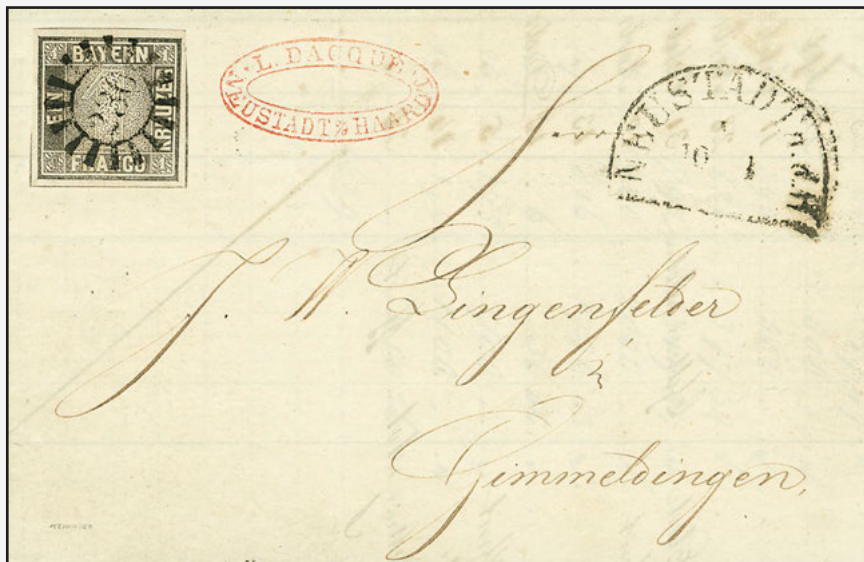 1 BAYERN 1
EIN
KREUZER
FRANCO
L. DACQUE
NEUSTADT a/HAARDT
NEUSTADT a.d.H
10 1
Herrn
J. W. Lingenfelder
in
Gimmeldingen.